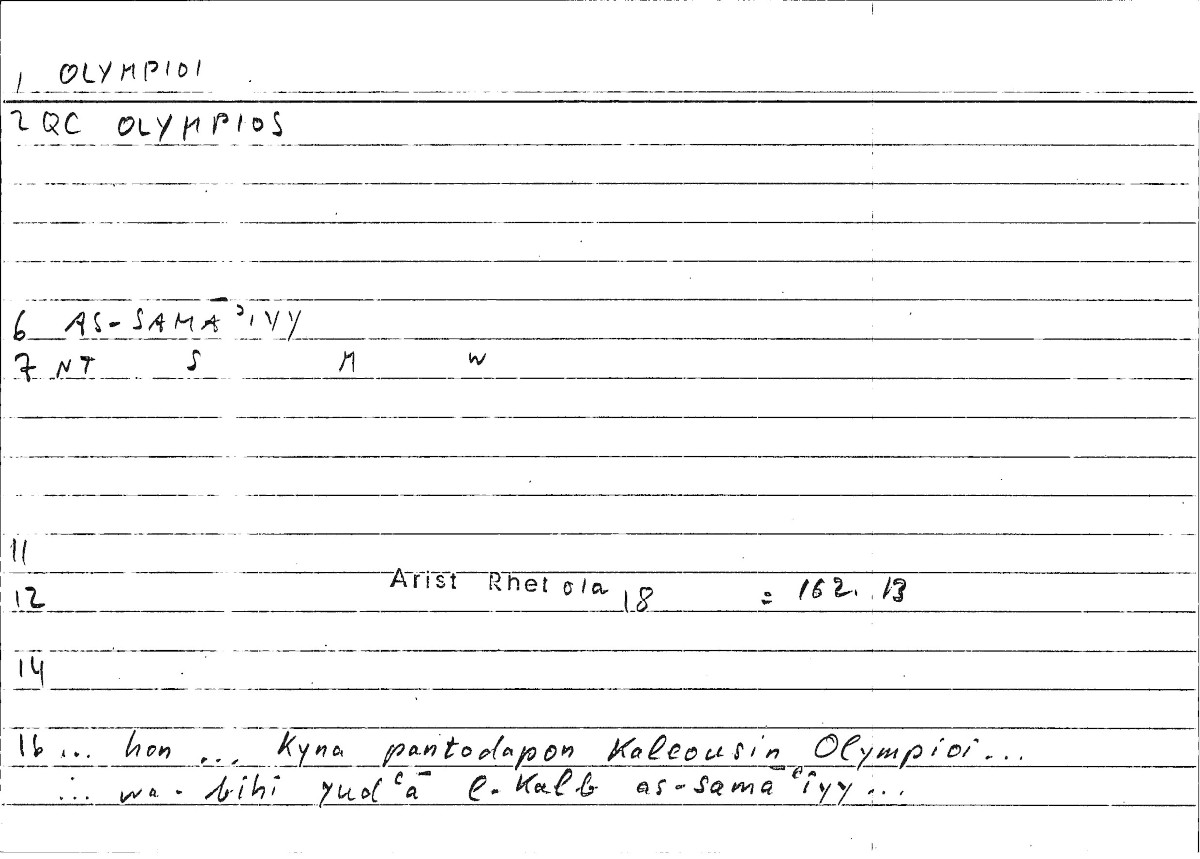 1 OLYMPIOI
2 QC OLYMPIOS
6 AS-SAMĀʾIYY
7 NT S M W
11
12 Arist Rhet 01a 18 = 162. 13
14
16 ... hon ... Kyna pantodapon Kaleousin Olympioi...
... wa-bihi yudʿā l-Kalb as-samāʿīyy...